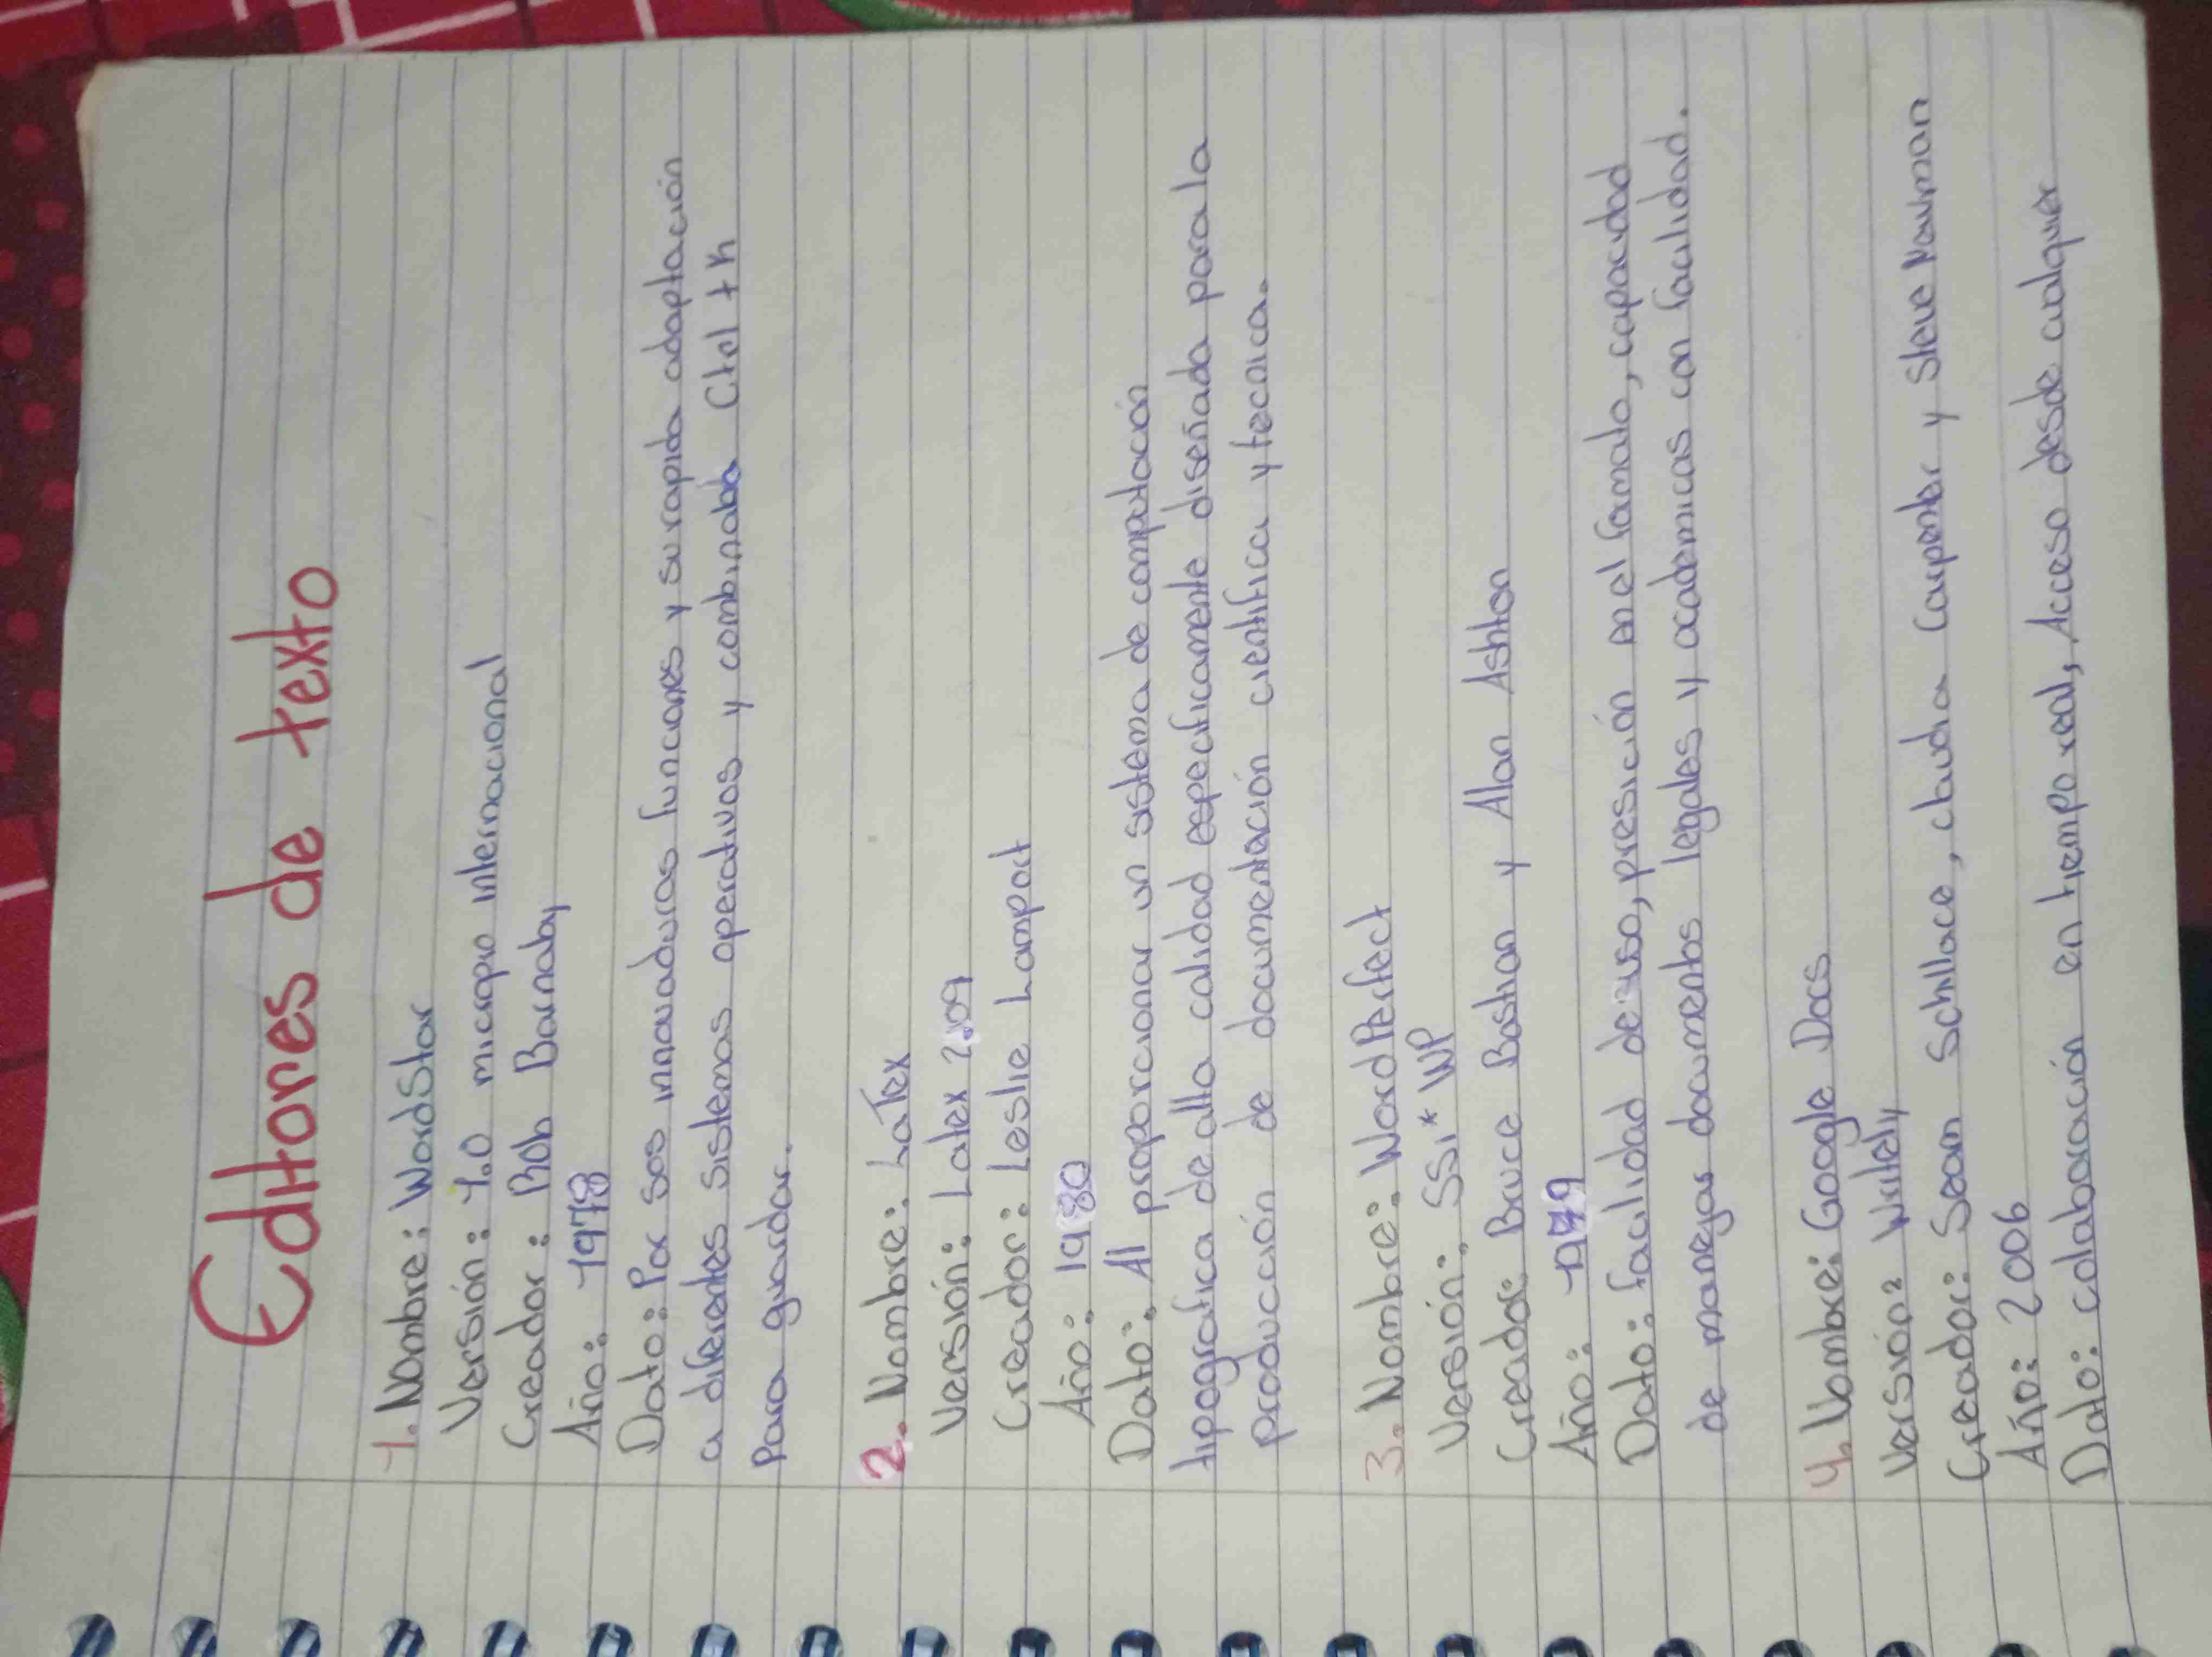 Editores de texto
1. Nombre: WordStar
Versión: 1.0 micropro internacional
Creador: Rob Barnaby
Año: 1978
Dato: Por sos innovaduras funciones y su rapida adaptación
a diferentes sistemas operativos y combinaba Ctrl + k
Para guardar.
2. Nombre: LaTex
Versión: Latex 2.09
Creador: Leslie Lamport
Año: 1980
Dato: Al proporcionar un sistema de computación
tipografica de alta calidad especificamente diseñada para la
producción de documentación cientifica y tecnica.
3. Nombre: WordPerfect
Versión: SSI*WP
Creador: Bruce Bastian y Alan Ashton
Año: 1979
Dato: facilidad de uso, presición en el formato, capacidad
de manejar documentos legales y academicos con facilidad.
4. Nombre: Google Docs
Versión: Writely
Creador: Sean Schillace, claudia Carpenter y Steve Newman
Año: 2006
Dato: colaboración en tiempo real, Acceso desde cualquier